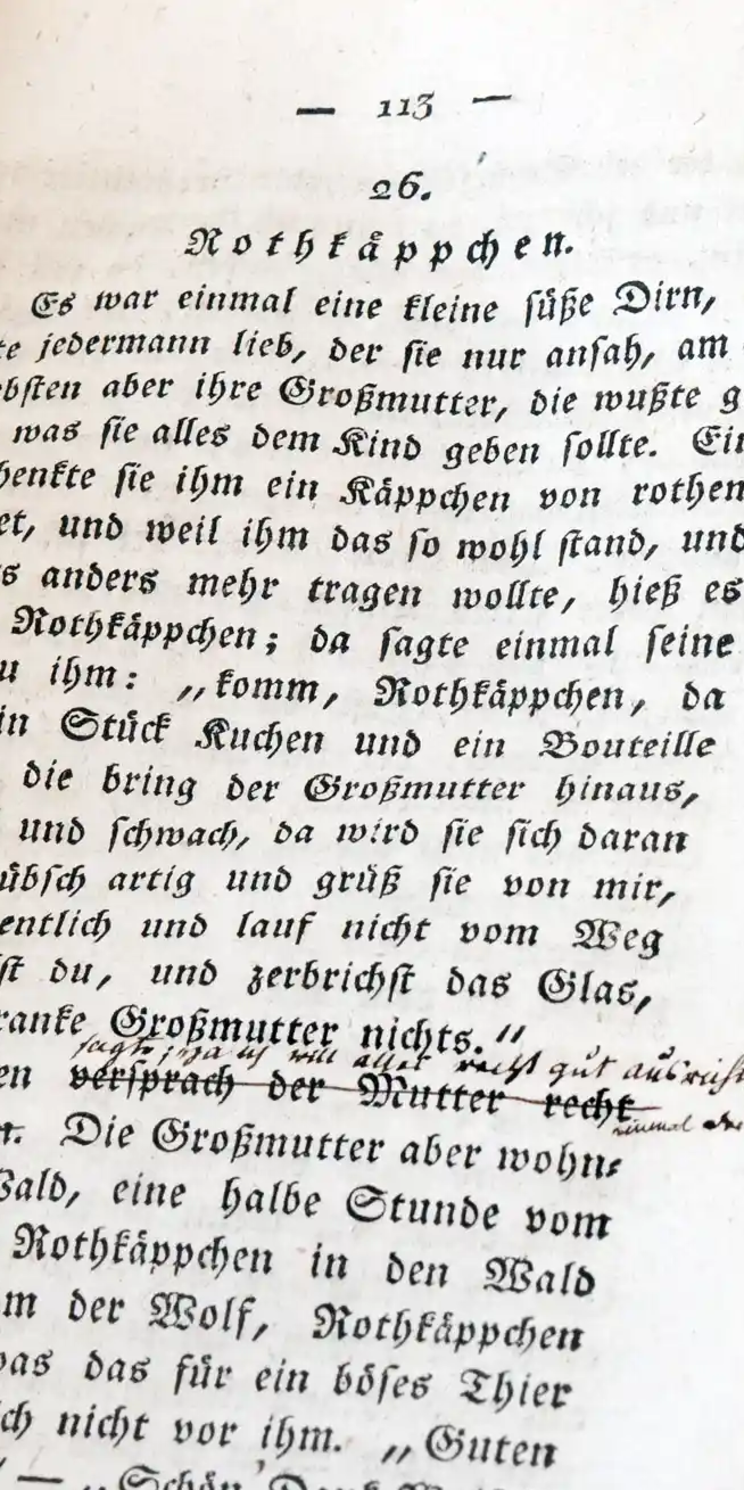 — 113 —
26.
Rothkäppchen.
Es war einmal eine kleine süße Dirn,
te jedermann lieb, der sie nur ansah, am
bsten aber ihre Großmutter, die wußte g
was sie alles dem Kind geben sollte. Ein
henkte sie ihm ein Käppchen von rothen
et, und weil ihm das so wohl stand, und
s anders mehr tragen wollte, hieß es
Rothkäppchen; da sagte einmal seine
u ihm: „komm, Rothkäppchen, da
in Stück Kuchen und ein Bouteille
die bring der Großmutter hinaus,
und schwach, da wird sie sich daran
übsch artig und grüß sie von mir,
entlich und lauf nicht vom Weg
st du, und zerbrichst das Glas,
ranke Großmutter nichts."
sagte ja ich will alles recht gut ausricht
en versprach der Mutter recht
einmal
r. Die Großmutter aber wohn-
Wald, eine halbe Stunde vom
Rothkäppchen in den Wald
m der Wolf, Rothkäppchen
was das für ein böses Thier
ch nicht vor ihm. „Guten
— „Schön Dank